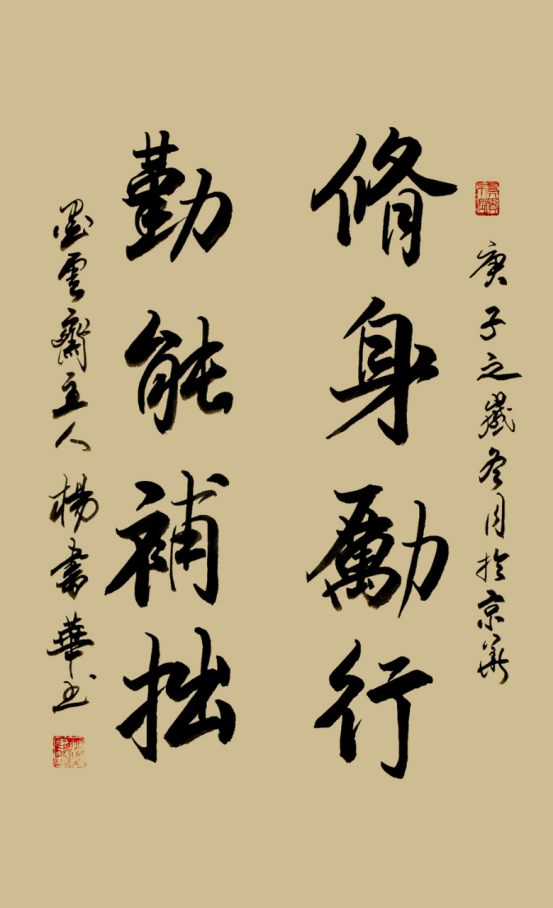 庚子之歲冬月於京華
脩身勵行
勤能補拙
墨雲齋主人楊書華書